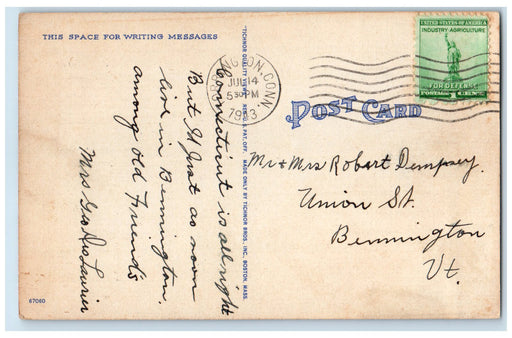 THIS SPACE FOR WRITING MESSAGES
Connecticut is all right
But I'd Just as soon
live in Bennington,
among old Friends
Mrs Geo
"TICHNOR QUALITY VIEWS," REG. U. S. PAT. OFF. MADE ONLY BY TICHNOR BROS., INC., BOSTON, MASS.
CONN.
JUL 14
5 30 PM
1943
UNITED STATES OF AMERICA
INDUSTRY AGRICULTURE
FOR DEFENSE
POSTAGE 1 CENT
POST CARD
Mr & Mrs Robert Dempsey.
Union St.
Bennington
Vt.
67080